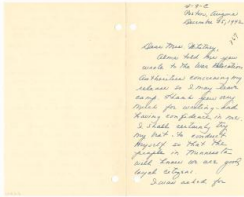 Poston, Arizona
December 25, 1942
Dear Miss
told me you
wrote to the War Relocation
Authorities concerning my
release so I may leave
camp. Thank you very
much for writing and
having confidence in me.
I shall certainly try
my best to conduct
myself so that the
people in
will know we are good,
loyal citizens.
I was asked for